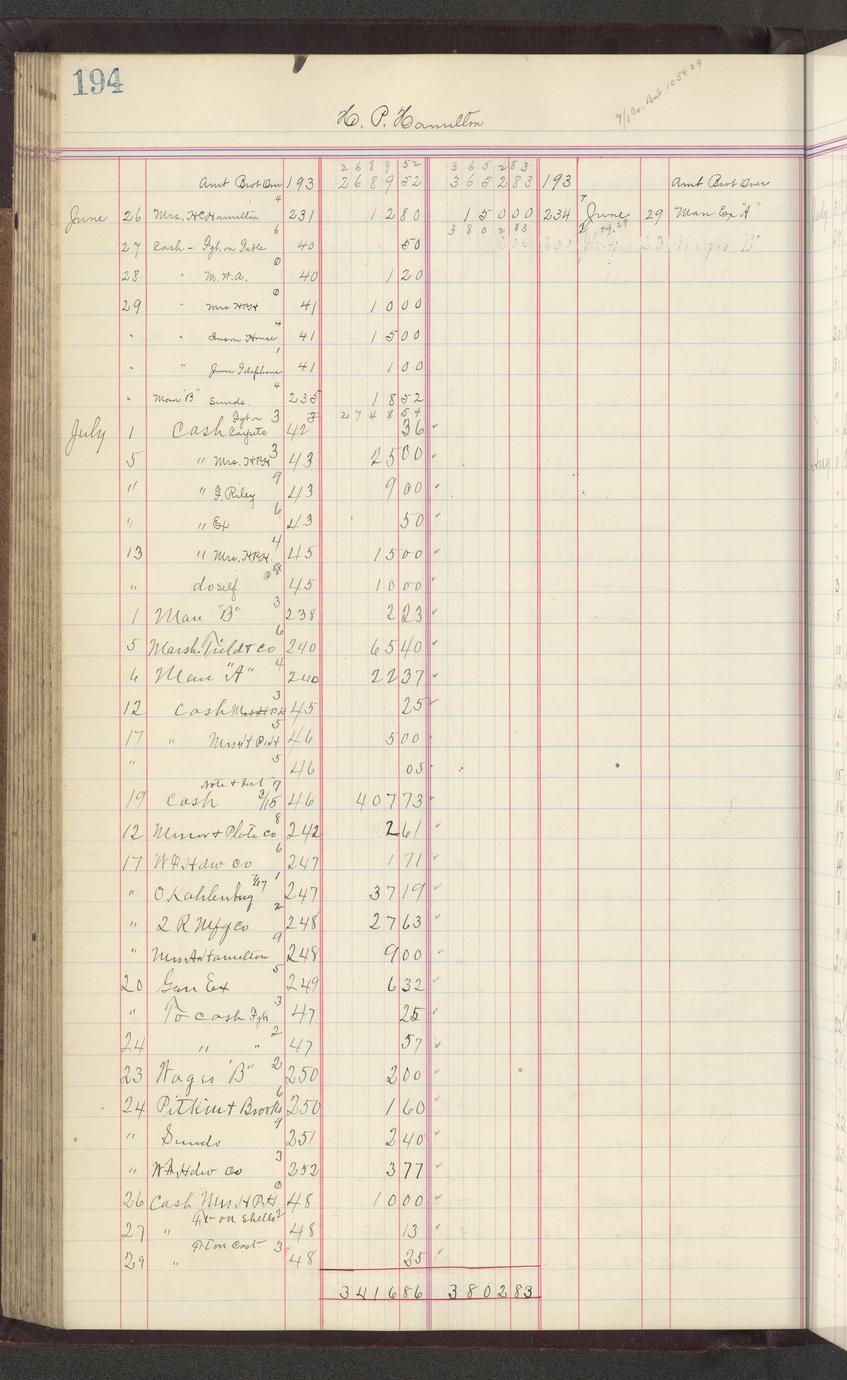 194
7/1 Cr. Bal. 1054.29
H. P. Hamilton
2689 52 3652 83
Amt Brot Over 193 2689 52 3652 83 193 Amt Brot Over
June 26 Mrs. HC Hamilton 4 231 12 80 150 00 234 June 29 Man Ex "A"
3802 83
27 Cash - Fgt. on Table 6 40 50
28 " M.W.A. 0 40 1 20
29 " Mrs HPH 0 41 10 00
" " House 4 41 15 00
" " June Telephone 1 41 1 00
" Man "B" Sunds. 4 235 18 52
2748 54
July 1 Cash Fgt on Carpets 3 42 36
5 " Mrs. HPH 3 43 25 00
" " F. Riley 9 43 9 00
" " Ex 6 43 50
13 " Mrs. HPH. 4 45 15 00
" do self 45 10 00
1 Man "B" 3 238 2 23
5 Marsh. Field & Co 6 240 65 40
6 Man "A" 4 240 22 37
12 Cash Mrs HPH 3 45 25
17 " Mrs H P H 5 46 5 00
" 5 46 05
19 Cash Note & Int 7 3/15 46 407 73
12 Mirror & Plate Co 8 242 2 61
17 W.F. Hdw Co 6 247 1 71
" O Kahlenburg 7/17 1 247 37 19
" 2 R Mfg Co 2 248 27 63
" Mrs. A Hamilton 9 248 9 00
20 Gen Ex 5 249 6 32
" To Cash Fgt 3 47 25
24 " " 2 47 57
23 Wages "B" 2 250 2 00
24 Pitkin & Brooks 6 250 1 60
" Sunds 9 251 2 40
" W.F. Hdw Co 3 252 3 77
26 Cash Mrs H P H 0 48 10 00
27 " Frt on Shells 2 48 13
29 " Frt on Cast. 3 48 25
3416 86 3802 83